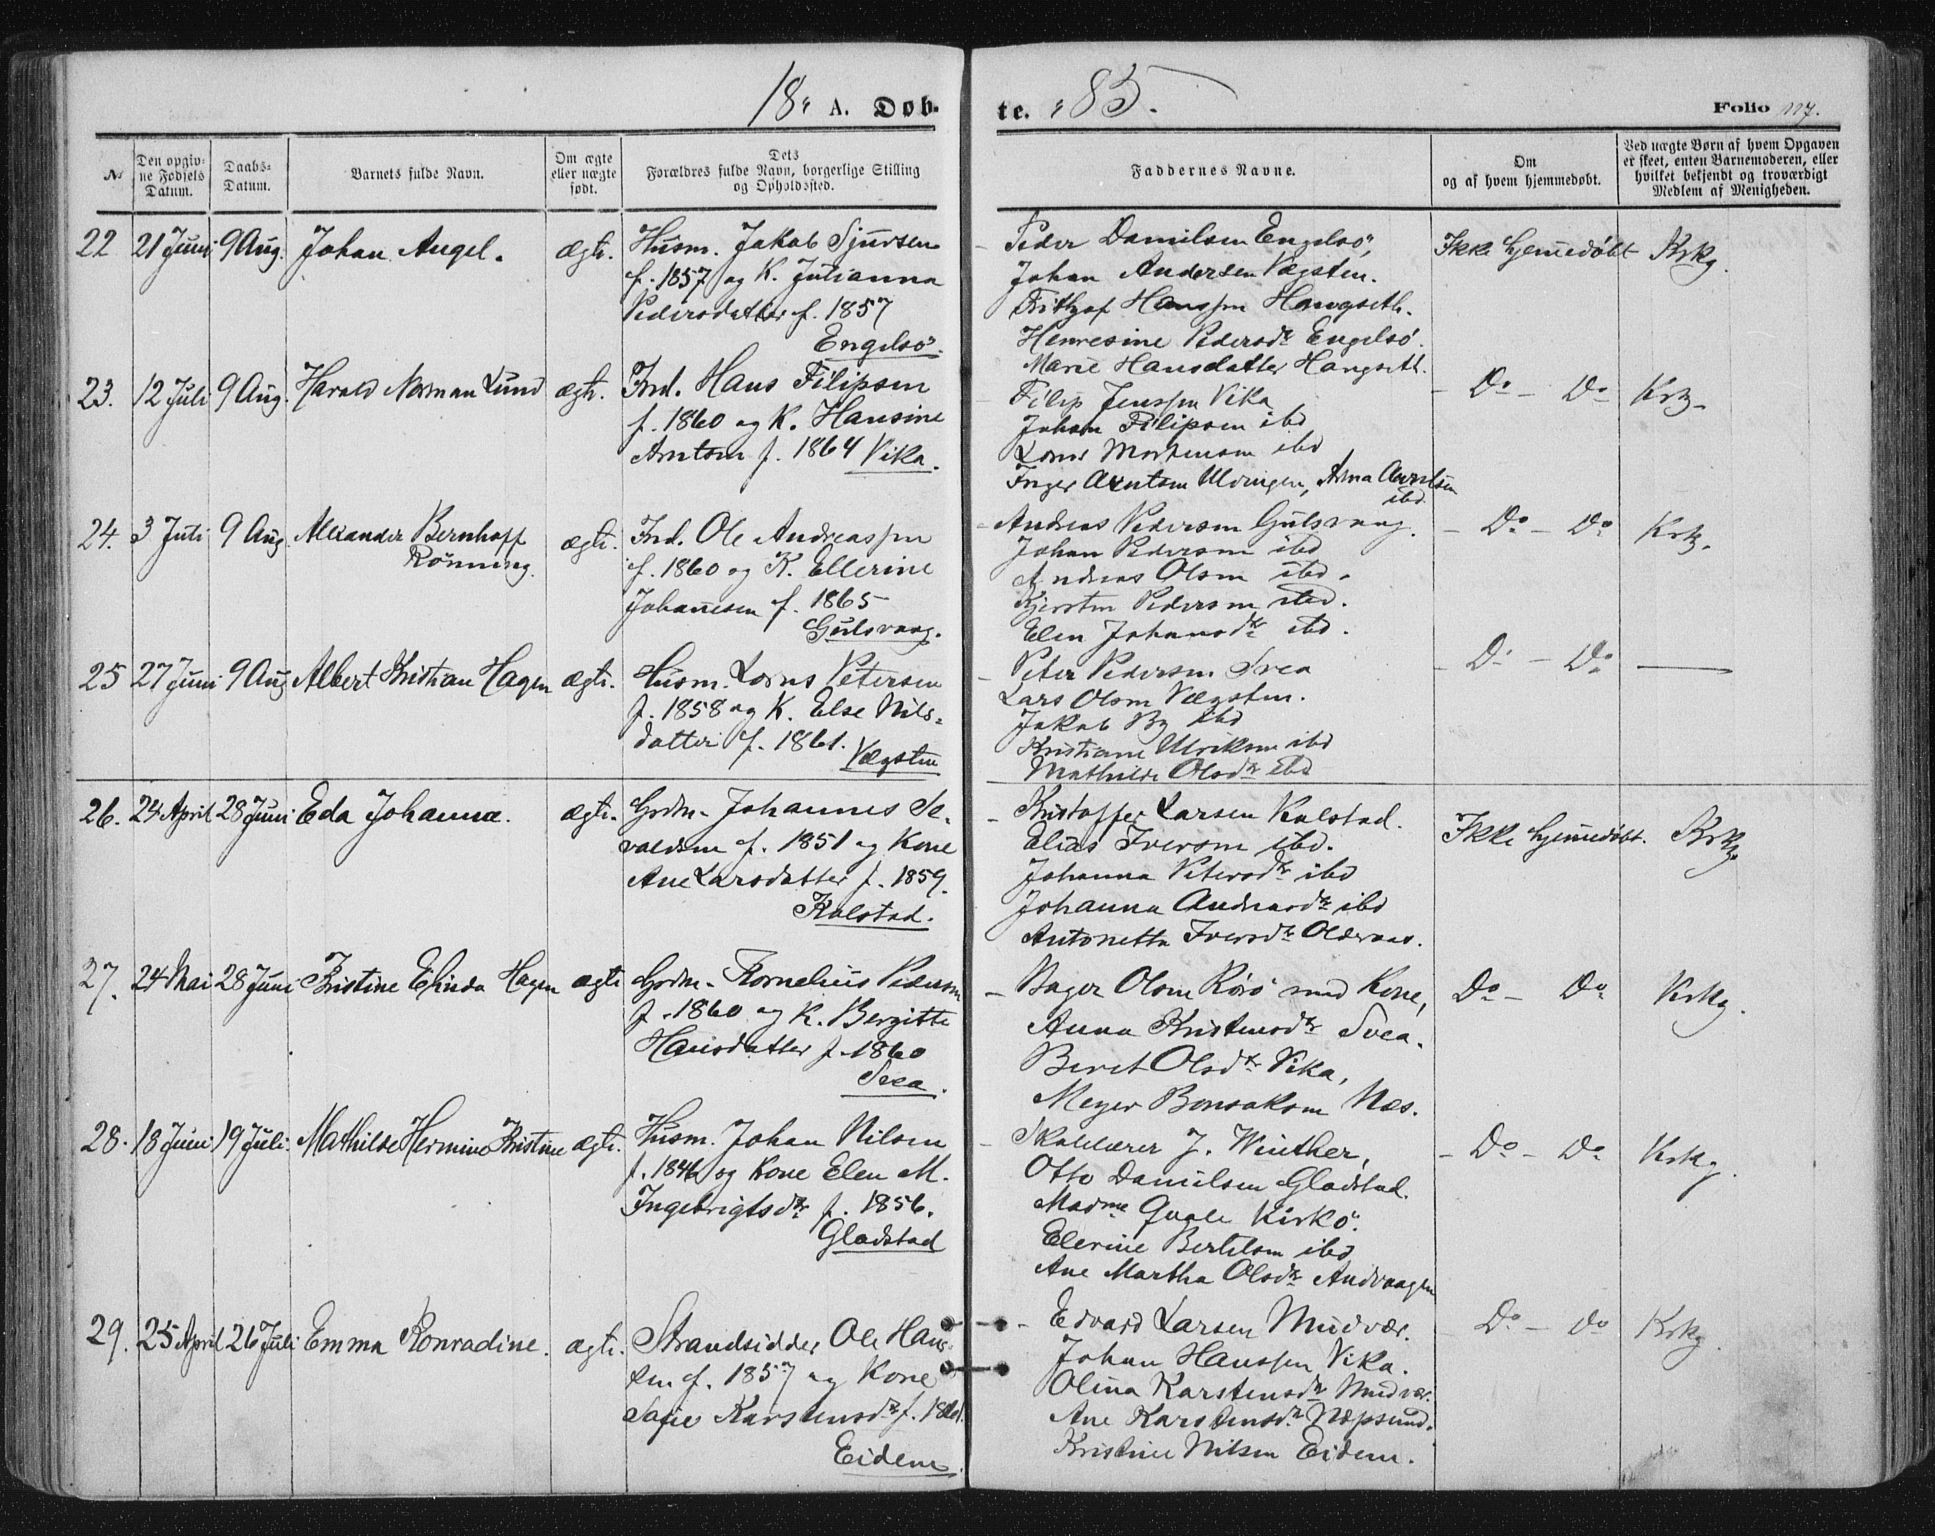 18 A. Døb-
te. 85. Folio 117.
№
Den opgiv-
ne Fødsels
Datum.
Daabs-
Datum.
Barnets fulde Navn.
Om ægte
eller uægte
født.
Dets
Forældres fulde Navn, borgerlige Stilling
og Opholdssted.
Faddernes Navne.
Om
og af hvem hjemmedøbt.
Ved uægte Børn af hvem Opgaven
er skeet, enten Barnemoderen, eller
hvilket bekjendt og troværdigt
Medlem af Menigheden.
22 21 Juni 9 Aug. Johan Angel. ægte.
Husm. Jakob Sjursen
f. 1857 og K. Julianna
Pedersdatter f. 1857
Engelsö.
Peder Danilsen Engelsö,
Johan Andersen Vægsten.
Frithjof Hanssen Hongseth.
Henresine Pedersdtr Engelsö.
Marie Hansdatter Hongseth.
Ikke hjemmedøbt Krkg.
23. 12 Juli 9 Aug. Harald Norman Lund ægte.
Ind. Hans Filipsen
f. 1860 og K. Hansine
Arntsen f. 1864 Vika.
Filip Jenssen Vika
Johan Filipsen ibd
Lorns Mortensen ibd
Inger Arntsen Ulvingen, Anna
ibd.
Do - Do Krk.
24. 3 Juli 9 Aug. Alexander Bernhoff
Rönning. ægte.
Ind. Ole Andreassen
f. 1860 og K. Ellerine
Johannesen f. 1865
Gulsvaag.
Andreas Pedersen Gulsvaag.
Johan Pedersen ibd
Andreas Olsen ibd.
Kjersten Pedersen ibd.
Elen Johansdtr ibd.
Do - Do Krk.
25 27 Juni 9 Aug Albert Kristian Hagen ægte.
Husm. Lorns Petersen
f. 1858 og K. Else Nils-
datter f. 1861.
Vægsten
Peter Pedersen Svea
Lars Olsen Vægsten.
Jakob By ibd
Kristiane Ulriksen ibd
Mathilde Olsdtr ibd
Do - Do —
26. 24 April 28 Juni Eda Johanna. ægte.
Grdm. Johannes Se-
valdsen f. 1851 og Kone
Ane Larsdatter f. 1859.
Kalstad.
Kristoffer Larsen Kalstad.
Elias Iversen ibd.
Johanna Petersdtr ibd
Johanna Andreasdtr ibd
Antonetta Iversdtr Oldervaa.
Ikke hjemmedøbt. Krkg.
27. 24 Mai 28 Juni Kristine Elinda Hagen ægte
Grdm. Kornelius Pedersen
f. 1860 og K. Bergitte
Hansdatter f. 1860
Svea.
Bager Olsen Rörö med Kone,
Anna Kristensdtr Svea.
Beret Olsdtr Vika,
Meyer Bonsaksen Næs.
Do - Do Krkg.
28. 18 Juni 19 Juli. Mathilde Hermine Kristine ægte.
Husm. Johan Nilsen
f. 1846 og Kone Elen M.
Ingebrigtsdtr f. 1856.
Gladstad
Skolelærer J. Winther,
Otto Danielsen Gladstad.
Madme Qvale Kirkö.
Elerine Bertelsen ibd
Ane Martha Olsdtr Andvaagen
Do - Do Krkg.
29. 25 April 26 Juli Emma Konradine. ægte.
Strandsidder Ole Hans-
sen f. 1857 og Kone
Sofie Karstensdtr f. 1861.
Eidem.
Edvard Larsen Mudvær.
Johan Hanssen Vika.
Olina Karstensdtr Mudvær.
Ane Karstensdtr Næpsund.
Kristine Nilsen Eidem.
Do - do Krkg.